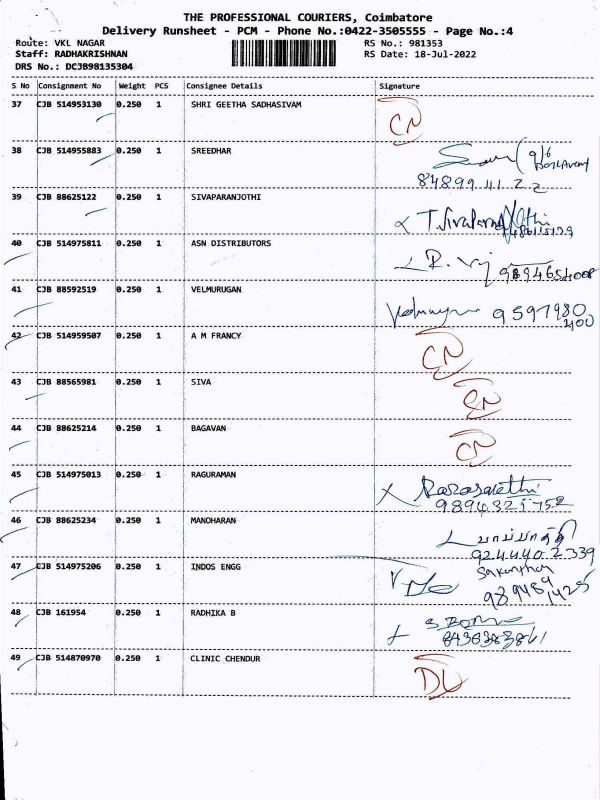 THE PROFESSIONAL COURIERS, Coimbatore
Delivery Runsheet - PCM - Phone No.:0422-3505555 - Page No.:4
Route: VKL NAGAR RS No.: 981353
Staff: RADHAKRISHNAN RS Date: 18-Jul-2022
DRS No.: DCJB98135304
S No Consignment No Weight PCS Consignee Details Signature
37 CJB 514953130 0.250 1 SHRI GEETHA SADHASIVAM CN
38 CJB 514955883 0.250 1 SREEDHAR
84899 41122
39 CJB 88625122 0.250 1 SIVAPARANJOTHI
40 CJB 514975811 0.250 1 ASN DISTRIBUTORS
R. Vij 9894654008
41 CJB 88592519 0.250 1 VELMURUGAN
Velmurugan 9597980
400
42 CJB 514959507 0.250 1 A M FRANCY CN
43 CJB 88565981 0.250 1 SIVA CN
44 CJB 88625214 0.250 1 BAGAVAN CN
45 CJB 514975013 0.250 1 RAGURAMAN
9894325752
46 CJB 88625234 0.250 1 MANOHARAN
924440 2339
47 CJB 514975206 0.250 1 INDOS ENGG
989489
14255
48 CJB 161954 0.250 1 RADHIKA B
49 CJB 514870970 0.250 1 CLINIC CHENDUR DL